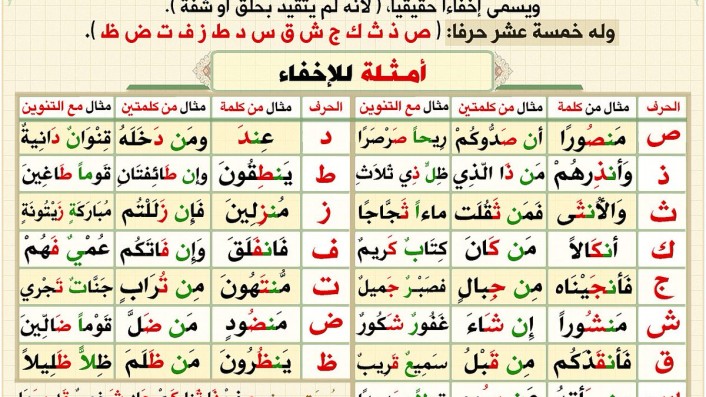 ويسمى إخفاءً حقيقياً، ( لأنه لم يتقيد بحلق أو شفة ).
وله خمسة عشر حرفا: ( ص ذ ث ك ج ش ق س د ط ز ف ت ض ظ ).
أمثلة للإخفاء
الحرف مثال من كلمة مثال من كلمتين مثال مع التنوين الحرف مثال من كلمة مثال من كلمتين مثال مع التنوين
ص مَنصُورًا أَن صَدُّوكُمْ رِيحاً صَرْصَرًا د عِندَ ومَن دَخَلَهُ قِنْوَانٌ دَانِيةٌ
ذ وَأَنذِرهُمْ مَن ذَا الّذِي ظِلٍّ ذِي ثَلاَث ط يَنطِقُونَ وإن طَائفتَانِ قَوماً طَاغِين
ث وَالأُنثَى فَمَن ثَقُلَت ماءاً ثَجَّاجا ز مُنزِلِينَ فَإن زَلَلْتُم مُبَارَكَةٍ زَيْتُونَةٍ
ك أنكَالاً مَن كَانَ كِتَابٌ كَرِيمٌ ف فَانفَلَقَ وَإِن فَاتَكُم عُمْيٌ فَهُمْ
ج فَأَنجَيْنَاه مِن جِبالٍ فَصَبْرٌ جَمِيلٌ ت مُنتَهُونَ مِن تُرَابٍ جَنَّاتٌ تَجْرِي
ش مَنشُوراً إِن شَاءَ غَفُورٌ شَكُورٌ ض مَنضُودٍ مَن ضَلَّ قَوْماً ضَالِّينَ
ق فَأَنقَذَكُم مِن قَبْلُ سَمِيعٌ قَرِيبٌ ظ يَنظُرُونَ مَن ظَلَمَ ظِلاًّ ظَلِيلاً